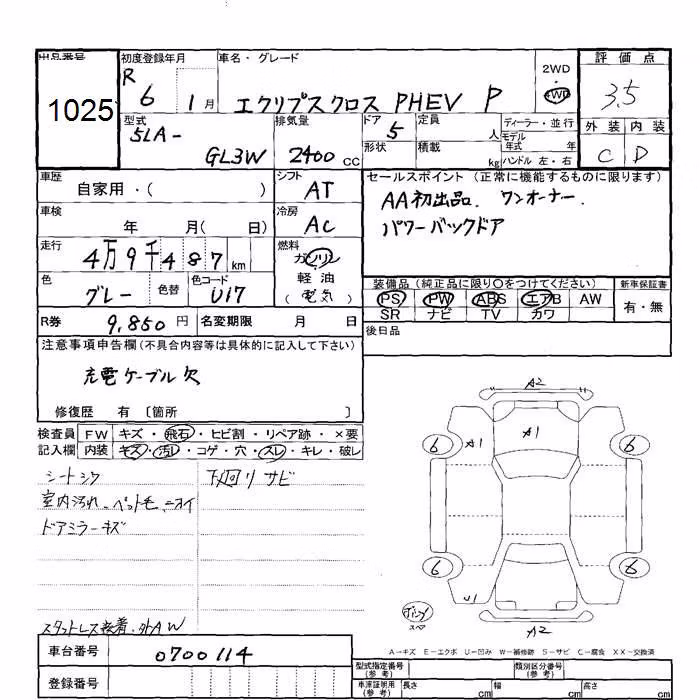 出品番号 初度登録年月 車名・グレード 2WD 評価点
1025 R 6 1月 エクリプスクロス PHEV P ・ 4WD 3.5
型式 排気量 ドア 定員 ディーラー・並行 外装 内装
5LA- 5 人 モデル
GL3W 2400 cc 形状 積載 年式 年 C D
kg ハンドル 左・右
車歴 シフト セールスポイント (正常に機能するものに限ります)
自家用・( ) AT AA初出品. ワンオーナー.
車検 冷房 パワーバックドア
年 月( 日) AC
走行 燃料
4万9千487km ガソリン
色 色替 色コード 軽油
グレー U17 (電気)
装備品 (純正品に限り○をつけてください) 新車保証書
PS PW ABS エアB AW 有・無
SR ナビ TV カワ
R券 9,850円 名変期限 月 日
後日品
注意事項申告欄(不具合内容等は具体的に記入して下さい)
充電ケーブル欠
修復歴 有 〔箇所 〕
検査員 FW キズ・飛石・ヒビ割・リペア跡・×要
記入欄 内装 キズ・汚レ・コゲ・穴・スレ・キレ・破レ
シートシワ 下回りサビ
室内汚れ、ペット毛、ニオイ
ドアミラーキズ
スタットレス装着・外AW
A2
6 A1 A1 6
6 6
U1
スペア
A2
A－キズ E－エクボ U－凹み W－補修跡 S－サビ C－腐食 XX－交換済
車台番号 0700114
登録番号
型式指定番号 (参考) 類別区分番号 (参考)
車庫証明用 (参考) 長さ cm 幅 cm 高さ cm